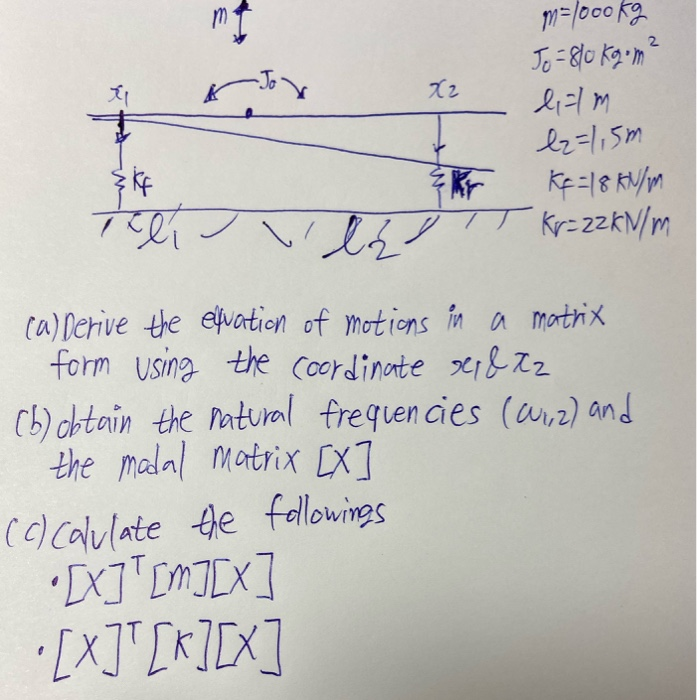 m
m=1000kg
J₀=810kg·m²
J₀
x₁
x₂
l₁=1 m
l₂=1,5m
Kf
Kr
Kf=18 KN/m
l₁
l₂
Kr=22KN/m
(a) Derive the equation of motions in a matrix
form using the coordinate x₁&x₂
(b) obtain the natural frequencies (ω₁,₂) and
the modal matrix [X]
(c) Calulate the followings
·[X]ᵀ[m][X]
·[X]ᵀ[K][X]